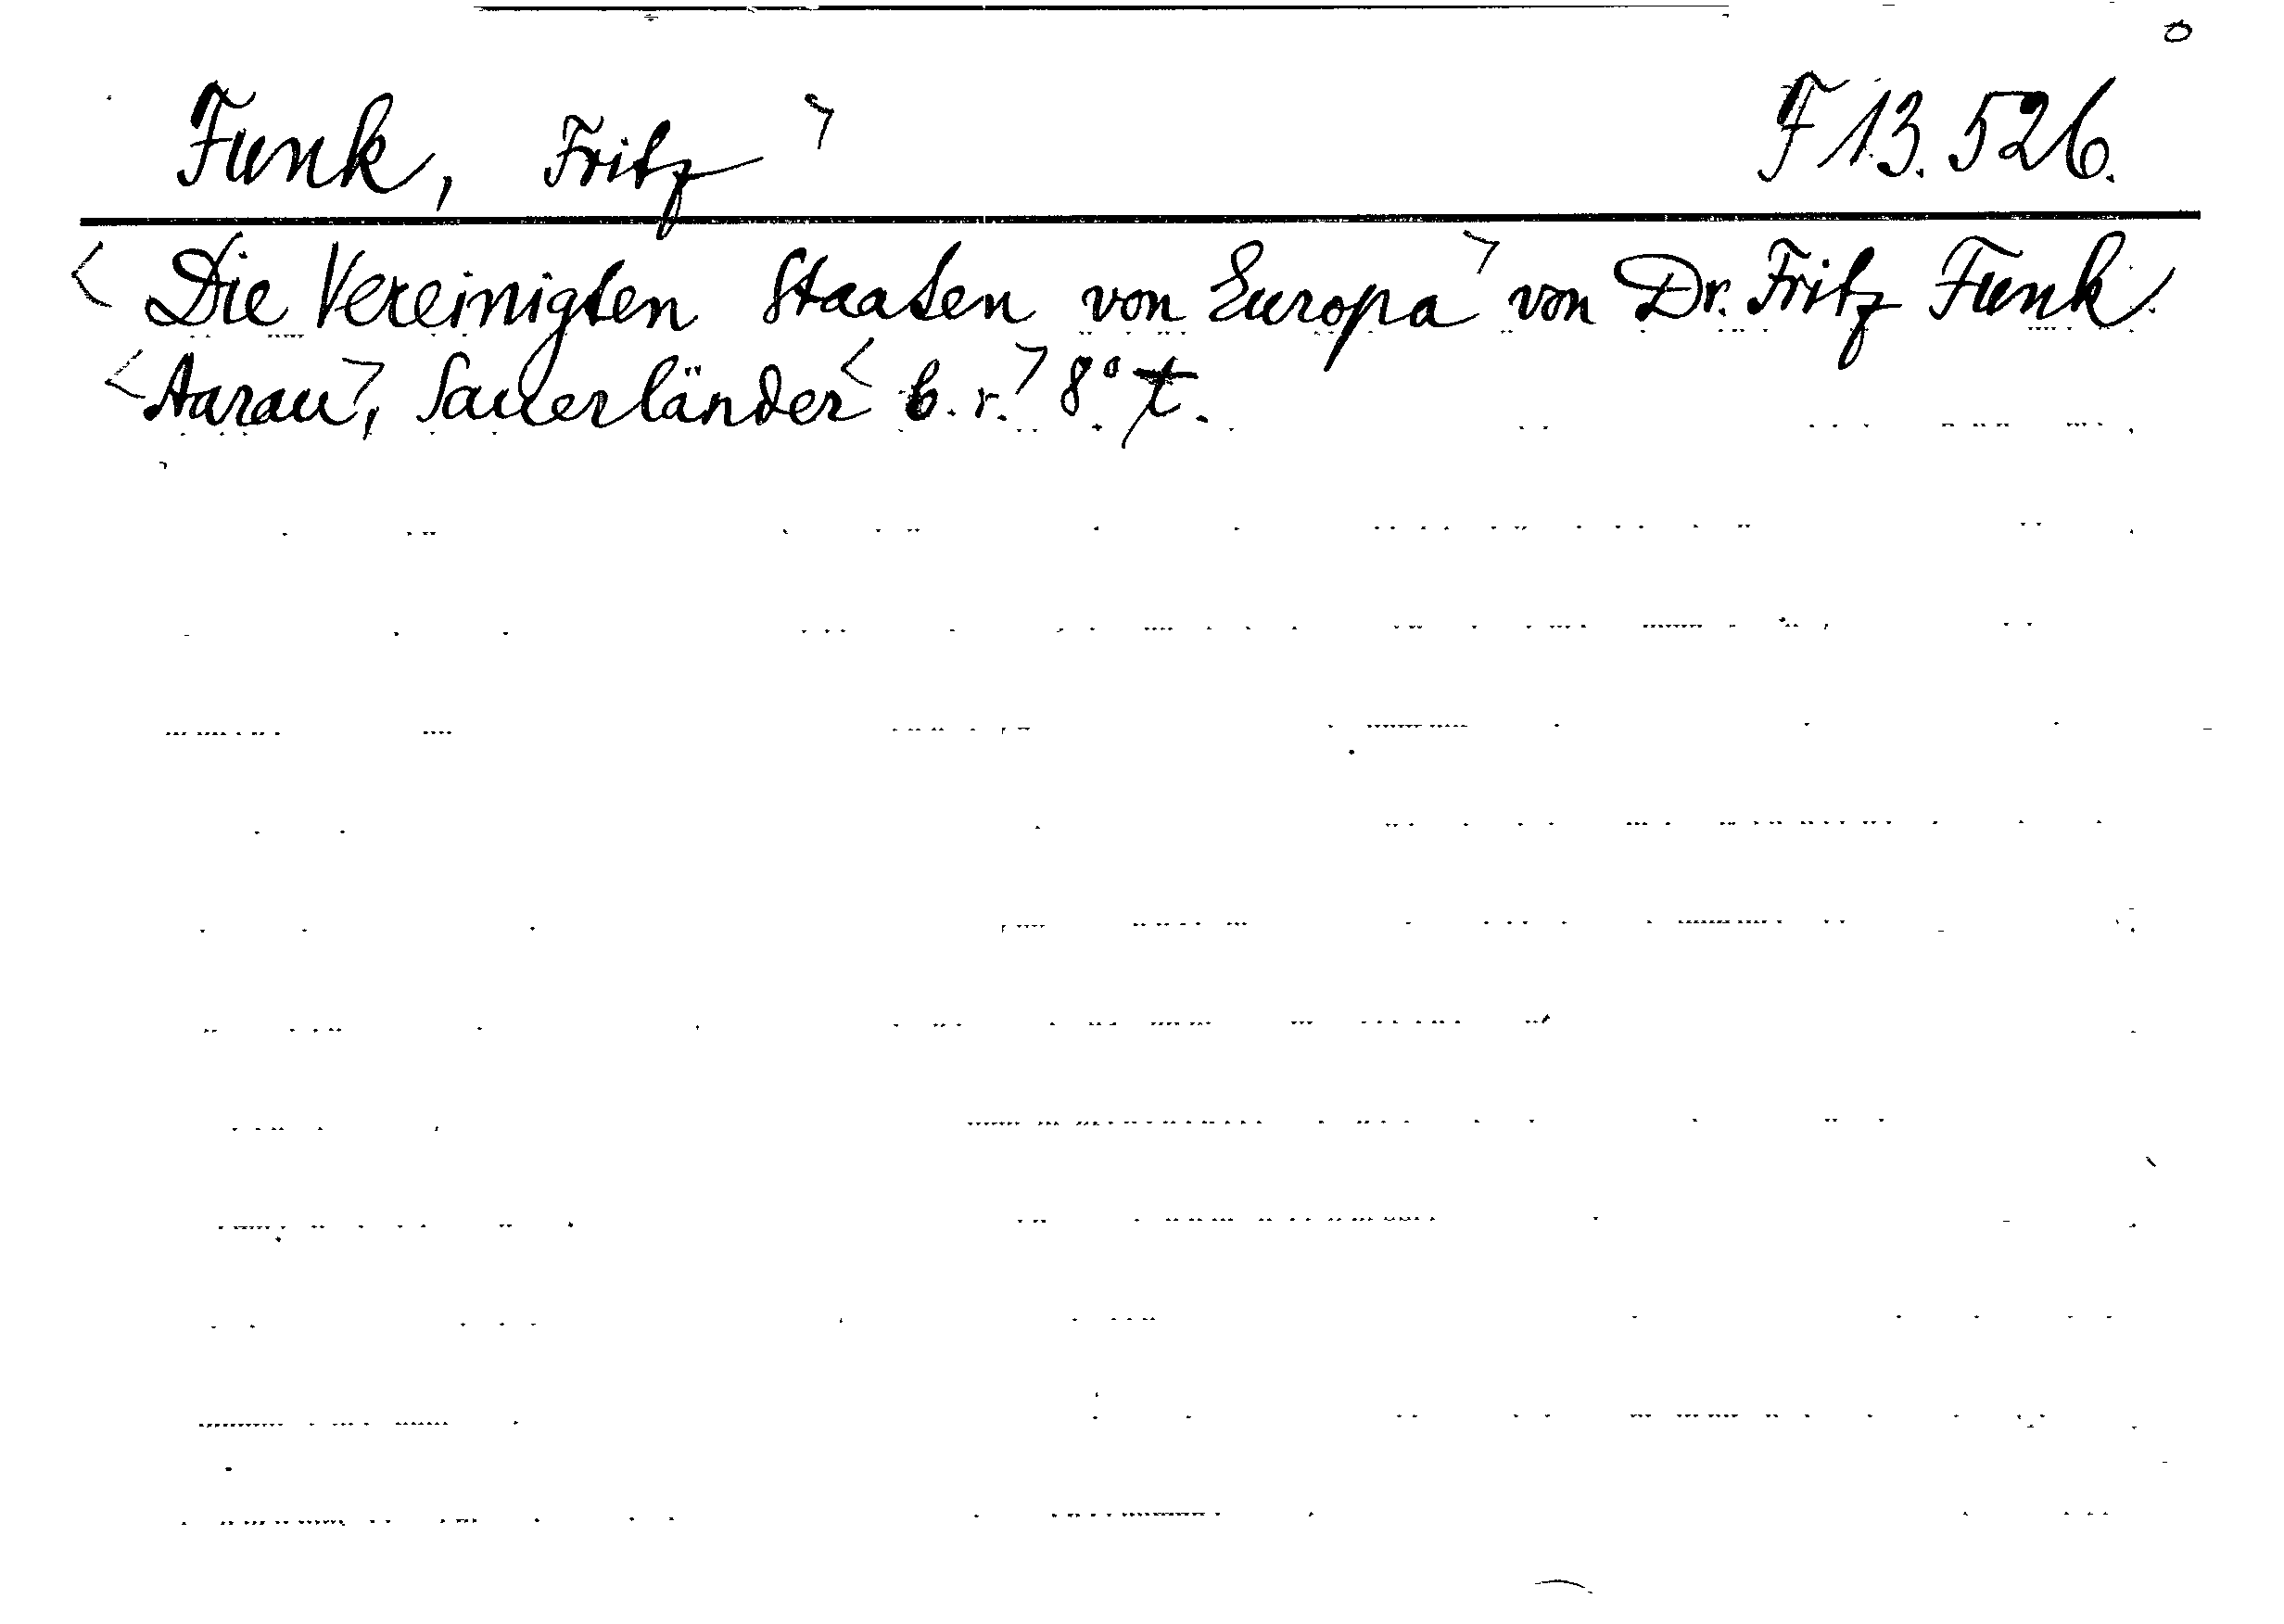 Funk, Fritz> F 13.526.
<Die Vereinigten Staaten von Europa> von Dr. Fritz Funk.
<Aarau>, Sauerländer <b. r.> 8° t.